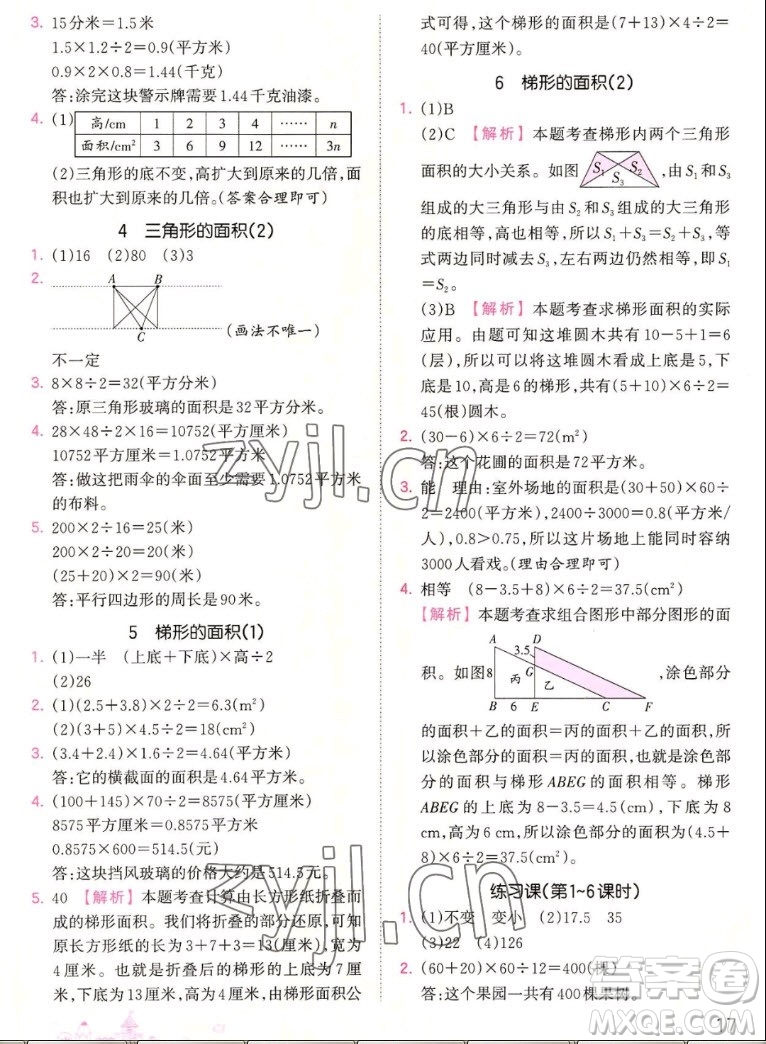 3. 15分米=1.5米
1.5×1.2÷2=0.9(平方米)
0.9×2×0.8=1.44(千克)
答:涂完这块警示牌需要1.44千克油漆。
4. (1) 高/cm 1 2 3 4 …… n
面积/cm² 3 6 9 12 …… 3n
(2)三角形的底不变,高扩大到原来的几倍,面
积也扩大到原来的几倍。(答案合理即可)
4 三角形的面积(2)
1. (1)16 (2)80 (3)3
2. A B
C (画法不唯一)
不一定
3. 8×8÷2=32(平方分米)
答:原三角形玻璃的面积是32平方分米。
4. 28×48÷2×16=10752(平方厘米)
10752平方厘米=1.0752平方米
答:做这把雨伞的伞面至少需要1.0752平方米
的布料。
5. 200×2÷16=25(米)
200×2÷20=20(米)
(25+20)×2=90(米)
答:平行四边形的周长是90米。
5 梯形的面积(1)
1. (1)一半 (上底+下底)×高÷2
(2)26
2. (1)(2.5+3.8)×2÷2=6.3(m²)
(2)(3+5)×4.5÷2=18(cm²)
3. (3.4+2.4)×1.6÷2=4.64(平方米)
答:它的横截面的面积是4.64平方米。
4. (100+145)×70÷2=8575(平方厘米)
8575平方厘米=0.8575平方米
0.8575×600=514.5(元)
答:这块挡风玻璃的价格大约是514.5元。
5. 40 【解析】本题考查计算由长方形纸折叠而
成的梯形面积。我们将折叠的部分还原,可知
原长方形纸的长为3+7+3=13(厘米),宽为
4厘米,也就是说,折叠后的梯形上底为7厘
米,下底为13厘米,高为4厘米,由梯形面积公
式可得,这个梯形的面积是(7+13)×4÷2=
40(平方厘米)。
6 梯形的面积(2)
1. (1)B
(2)C 【解析】本题考查梯形内两个三角形
面积的大小关系。如图 S₁ S₂ S₃ ,由S₁和S₃
组成的大三角形与由S₂和S₃组成的大三角形
的底相等,高也相等,所以S₁+S₃=S₂+S₃,等
式两边同时减去S₃,左右两边仍然相等,即S₁
=S₂。
(3)B 【解析】本题考查求梯形面积的实际
应用。由题可知这堆圆木共有10-5+1=6
(层),所以可以将这堆圆木看成上底是5,下
底是10,高是6的梯形,共有(5+10)×6÷2=
45(根)圆木。
2. (30-6)×6÷2=72(m²)
答:这个花圃的面积是72平方米。
3. 能 理由:室外场地的面积是(30+50)×60÷
2=2400(平方米),2400÷3000=0.8(平方米/
人),0.8>0.75,所以这片场地上能同时容纳
3000人看戏。(理由合理即可)
4. 相等 (8-3.5+8)×6÷2=37.5(cm²)
【解析】本题考查求组合图形中部分图形的面
积。如图 A D 3.5 G 8 丙 乙 B 6 E C F ,涂色部分
的面积+乙的面积=丙的面积+乙的面积,所
以涂色部分的面积=丙的面积,也就是涂色部
分的面积与梯形ABEG的面积相等。梯形
ABEG的上底为8-3.5=4.5(cm),下底为8
cm,高为6 cm,所以涂色部分的面积是(4.5+
8)×6÷2=37.5(cm²)。
练习课(第1~6课时)
1. (1)不变 变小 (2)17.5 35
(3)22 (4)126
2. (60+20)×60÷12=400(棵)
答:这个果园一共有400棵果树。
17
zyjl.cn
zyjl.cn
答案圈
MXQE.COM